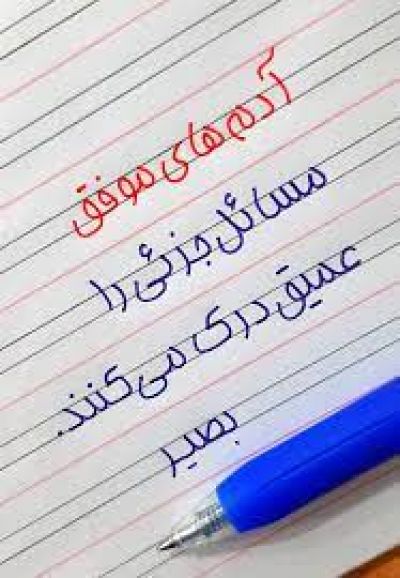 آدم های موفق
مسائل جزئی را
عمیق درک می کنند.
بصیر